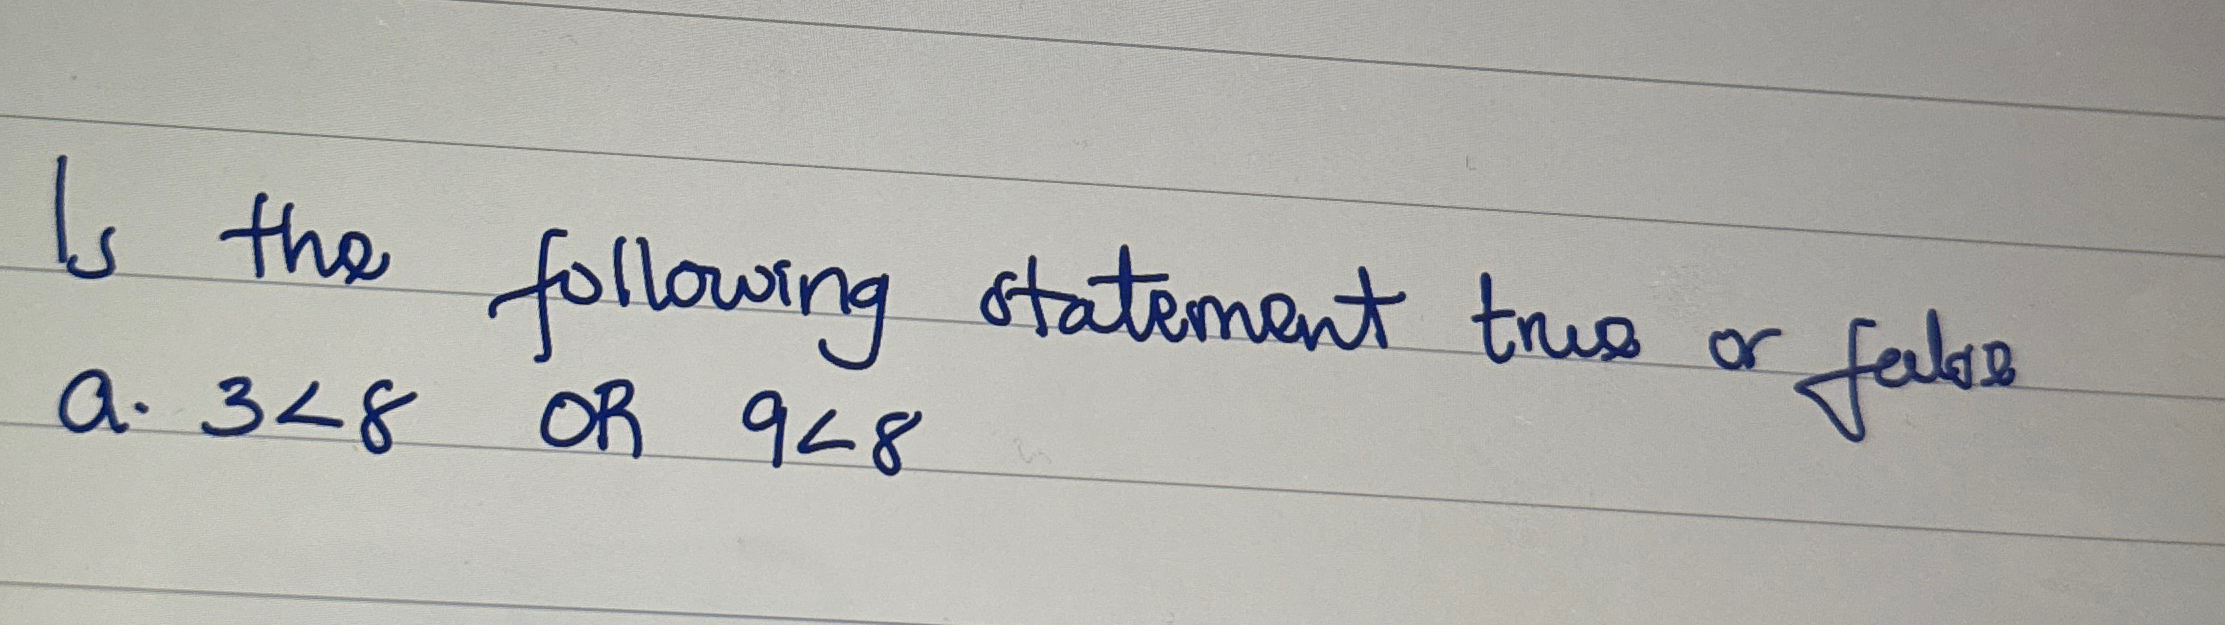 Is the following statement true or false
a. 3<8 OR 9<8